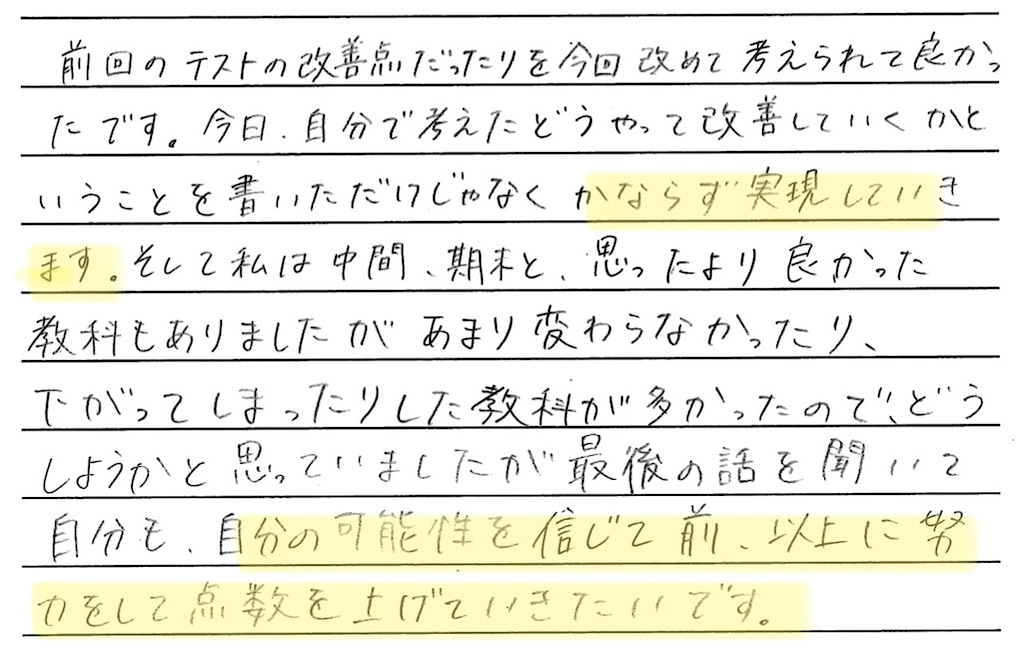 前回のテストの改善点だったりを今回改めて考えられて良かっ
たです。今日、自分で考えたどうやって改善していくかと
いうことを書いただけじゃなくかならず実現していき
ます。そして私は中間、期末と、思ったより良かった
教科もありましたがあまり変わらなかったり、
下がってしまったりした教科が多かったので、どう
しようかと思っていましたが最後の話を聞いて
自分も、自分の可能性を信じて前、以上に努
力をして点数を上げていきたいです。